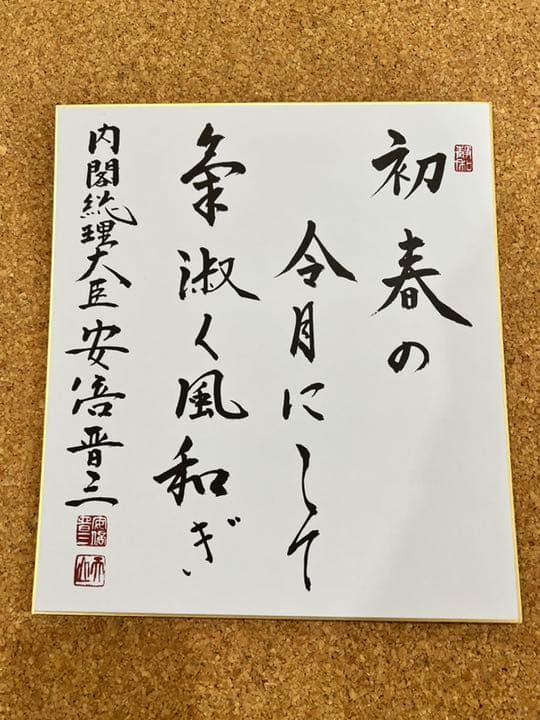 初春の
令月にして
氣淑く風和ぎ
内閣総理大臣 安倍晋三
安倍晋三